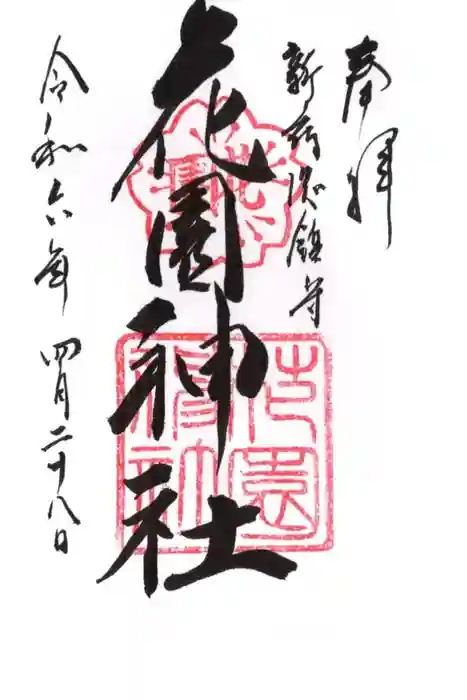 奉拝
新宿総鎮守
花園神社
令和六年 四月二十八日